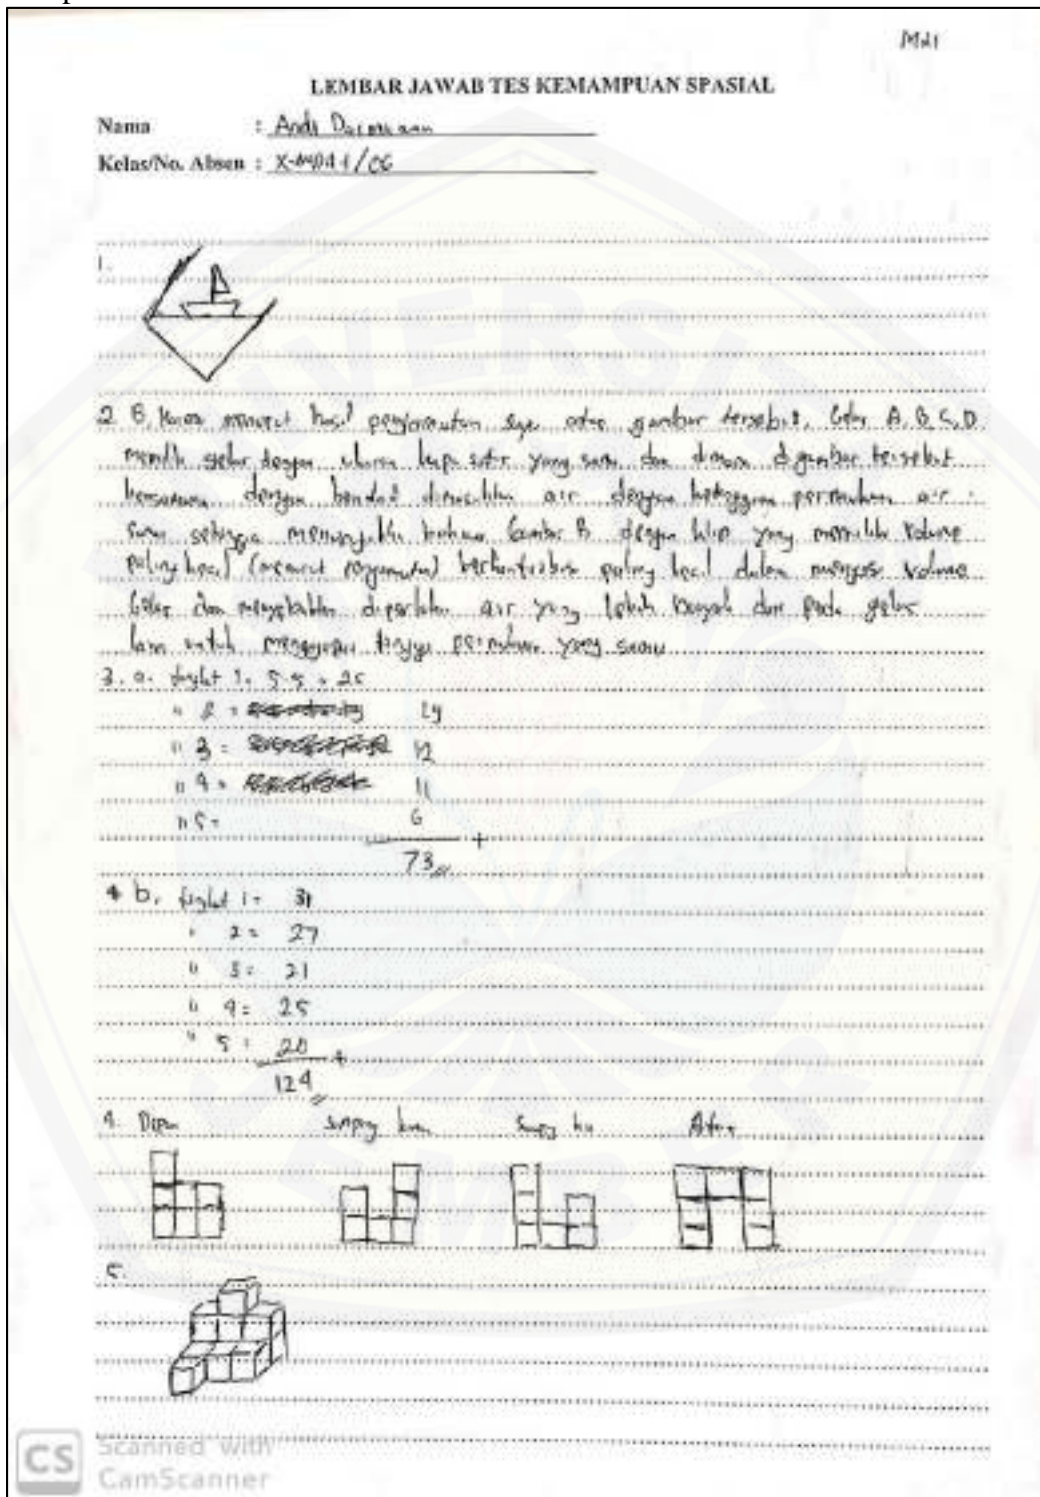 M21
LEMBAR JAWAB TES KEMAMPUAN SPASIAL
Nama : Andi
Kelas/No. Absen : /06
1.
2. B, Karena menurut hasil pengamatan saya atas gambar tersebut, Gelas A, B, C, D
memiliki gelas dengan ukuran yang sama dan dimana digambar tersebut
dengan benda2 dimasukkan air dengan ketinggian permukaan air
sama sehingga menunjukkan bahwa Gambar B dengan klip yang memiliki volume
paling kecil (menurut pengamatan) berkontribusi paling kecil dalam mengisi volume
Gelas dan menyebabkan diperlukan air yang lebih banyak dari pada gelas
lain untuk menggapai tinggi permukaan yang sama
3. a. tingkat 1 = 5.5 = 25
" 2 =
" 3 = 12
" 4 = 11
" 5 = 6
+
73
b. tingkat 1 = 31
" 2 = 27
" 3 = 21
" 4 = 25
" 5 = 20
+
124
4. Depan Samping kanan Samping kiri Atas
5.
CS Scanned with
CamScanner